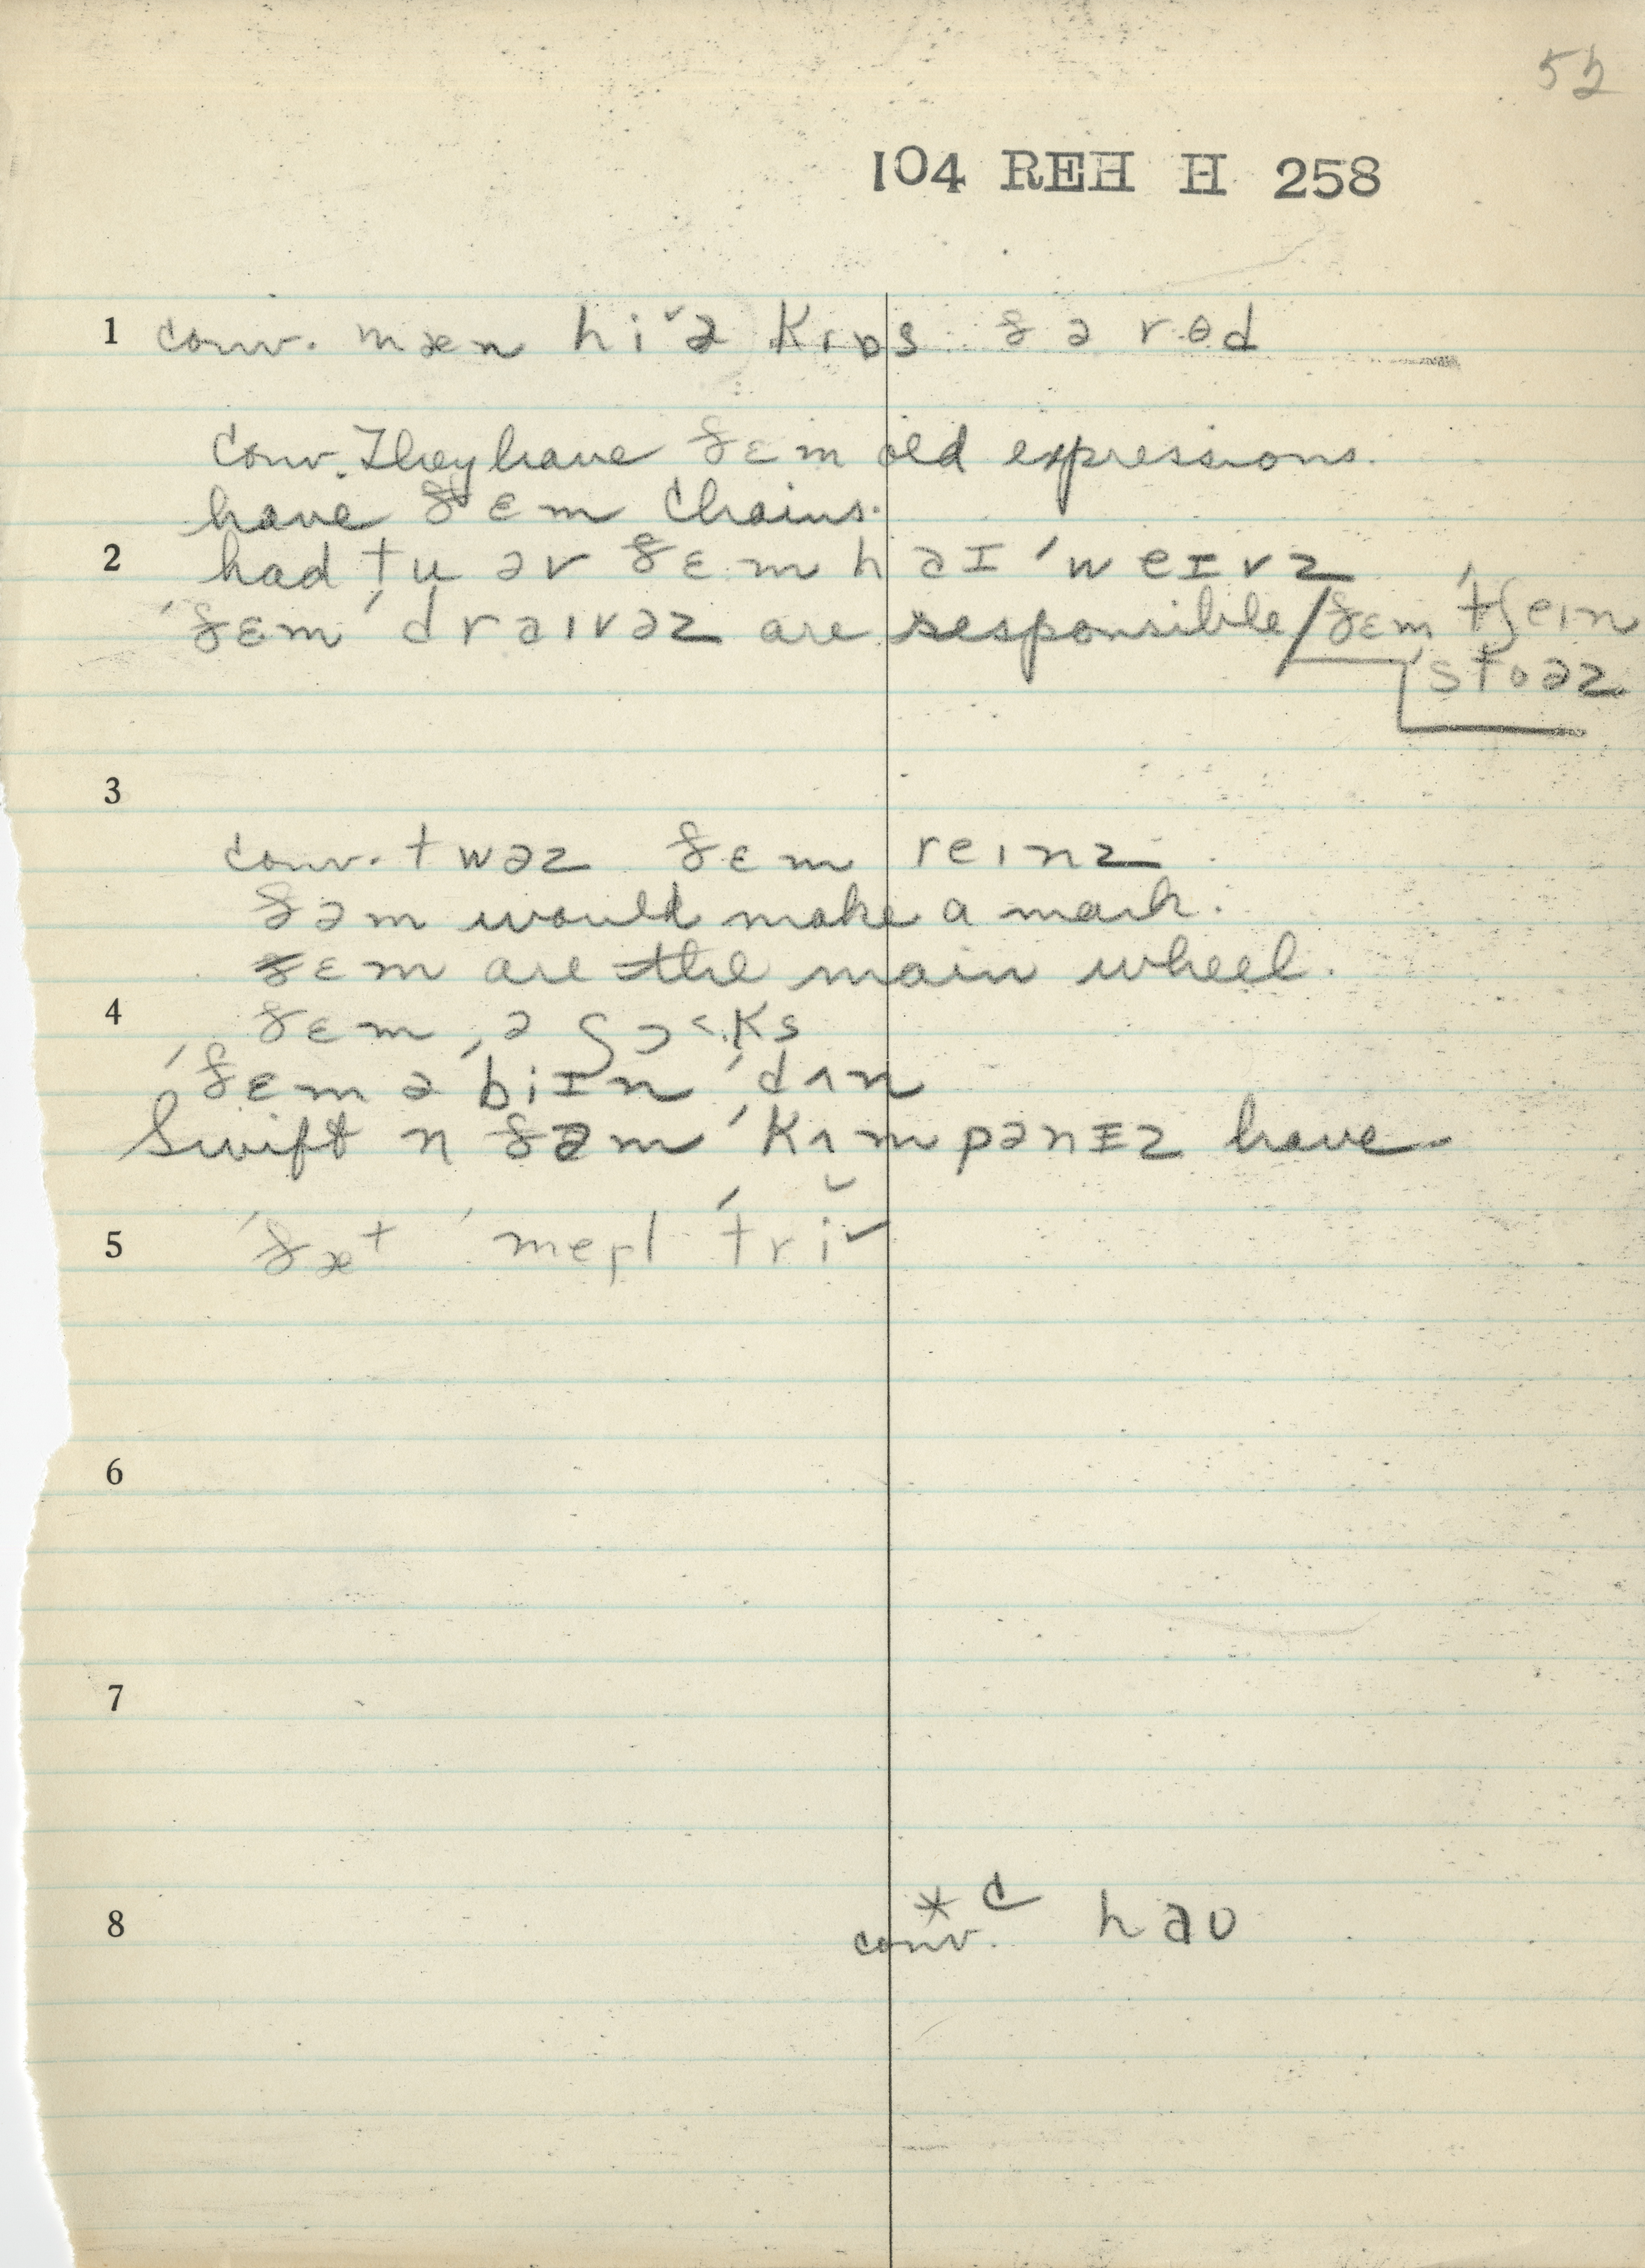 52
104 REH H 258
1 conv. mæn hi˅ə kɪps ðə rod
conv. They have ðɛm old expressions.
have ðɛm chains.
2 had tu əv ðɛm haɪˈweɪvz
ˈðɛm ˈdraɪvəz are responsible / ðɛm ˈtʃeɪn
ˈstoəz
3
conv. twəz ðɛm reɪnz
ðəm would make a mark.
ðɛm are the main wheel.
4 ðɛm ə
ˈðɛm ə ˈbiɪn ˈdʌn
Swift n ðəm ˈkʌmpənɪz have
5 ˈðæt ˈmepl ˈtri˅
6
7
8 * c
conv. haʊ